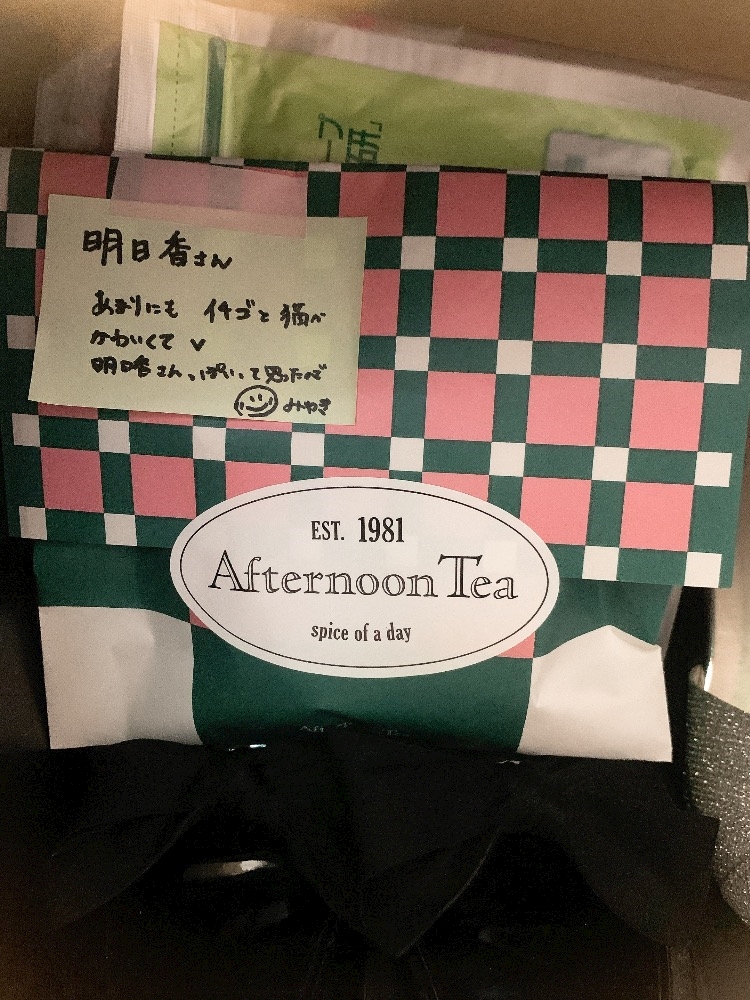 プ
研」
明日香さん
あまりにも イチゴと猫が
かわいくて
明日香さんっぽいって思ったので
みやぎ
EST. 1981
Afternoon Tea
spice of a day